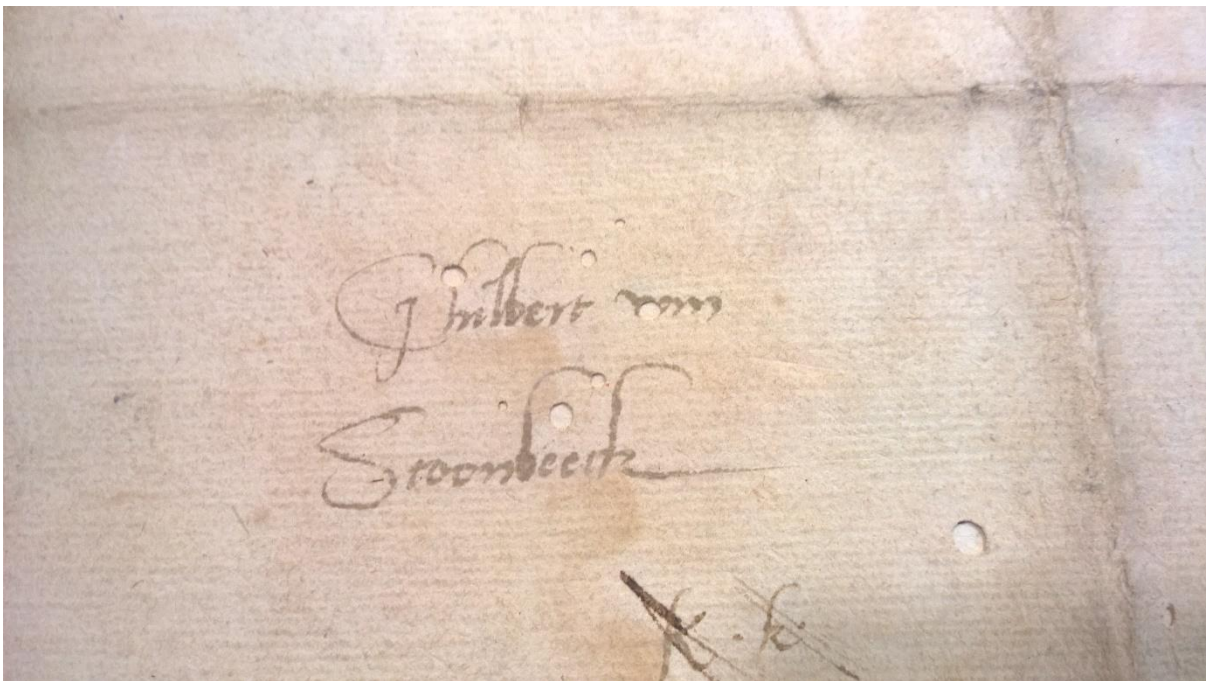 Ghilbert van
Scoonbeeck
k . k